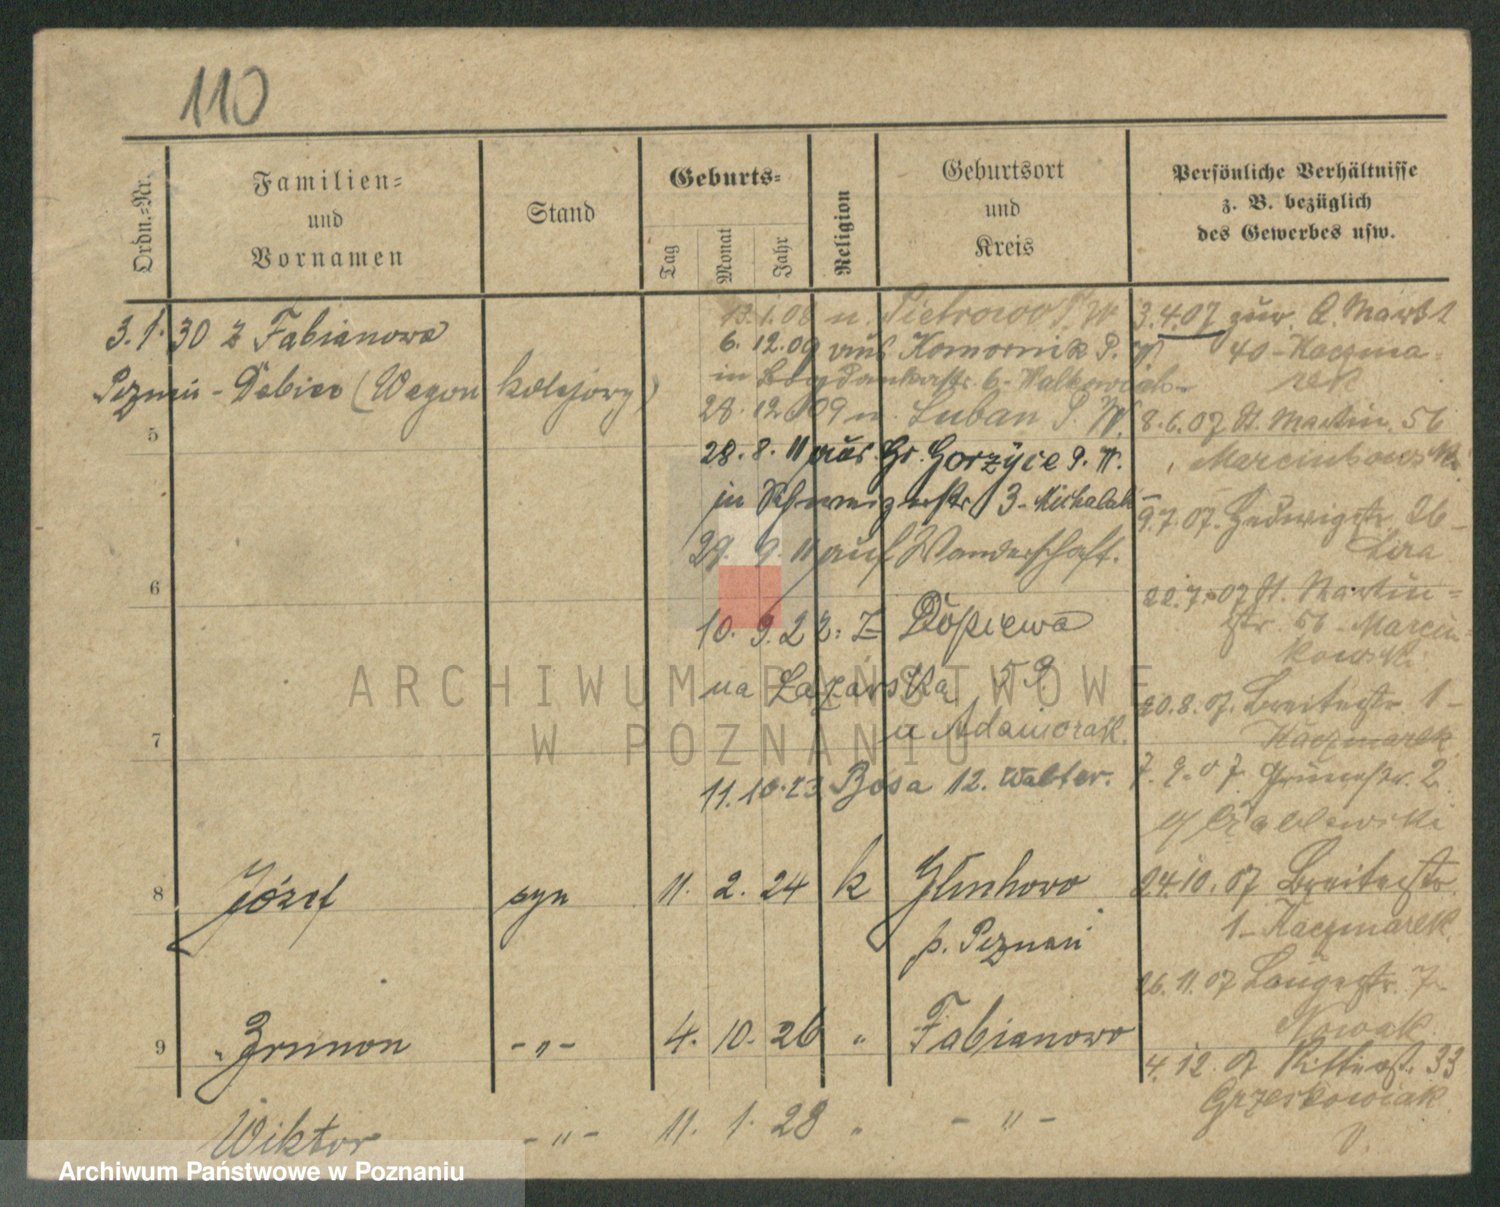 110
Ordn.=Nr.
Familien=
und
Vornamen
Stand
Geburts=
Tag
Monat
Jahr
Religion
Geburtsort
und
Kreis
Persönliche Verhältnisse
z. B. bezüglich
des Gewerbes usw.
3.1.30 z Fabianowa
Poznań - Dębiec (Wagon kolejowy)
5
6
7
13.1.08 n. Pietrowo P. W
6. 12.09 aus Komornik P. W.
in
28. 12 09 n. Luban P. W.
28. 8. 11 aus Gr. Gorzyce P. W.
in 3 - Michalak
29. 9. 11 auf Wanderschaft.
10. 9. 22. z Dopiewa
na Łazarska 5
u Adamczak.
11. 10. 23 Bosa 12. Walter.
8 Józef syn 11. 2. 24 k Głuchowo
p. Poznań
9 Zenon -„- 4. 10. 26 „ Fabianowo
Wiktor -„- 11. 1. 28 „ -„-
3.4.07 zur. A. Markt
40 - Kaczma=
rek
8.6.07 St. Martin. 56
Marcinkowski
9.7.07. Hedwigstr. 26 -
22.7.07 St. Martin=
str. 56 - Marcin=
kowski.
20.8.07. Breitestr. 1 -
Kaczmarek
7. 9. 07. Grünestr. 2
24.10.07 Breitestr.
1 - Kaczmarek.
26.11.07 Langestr. 7 -
Nowak
4. 12. 07 Ritterst. 33
Grzeskowiak
ARCHIWUM PAŃSTWOWE
W POZNANIU
Archiwum Państwowe w Poznaniu